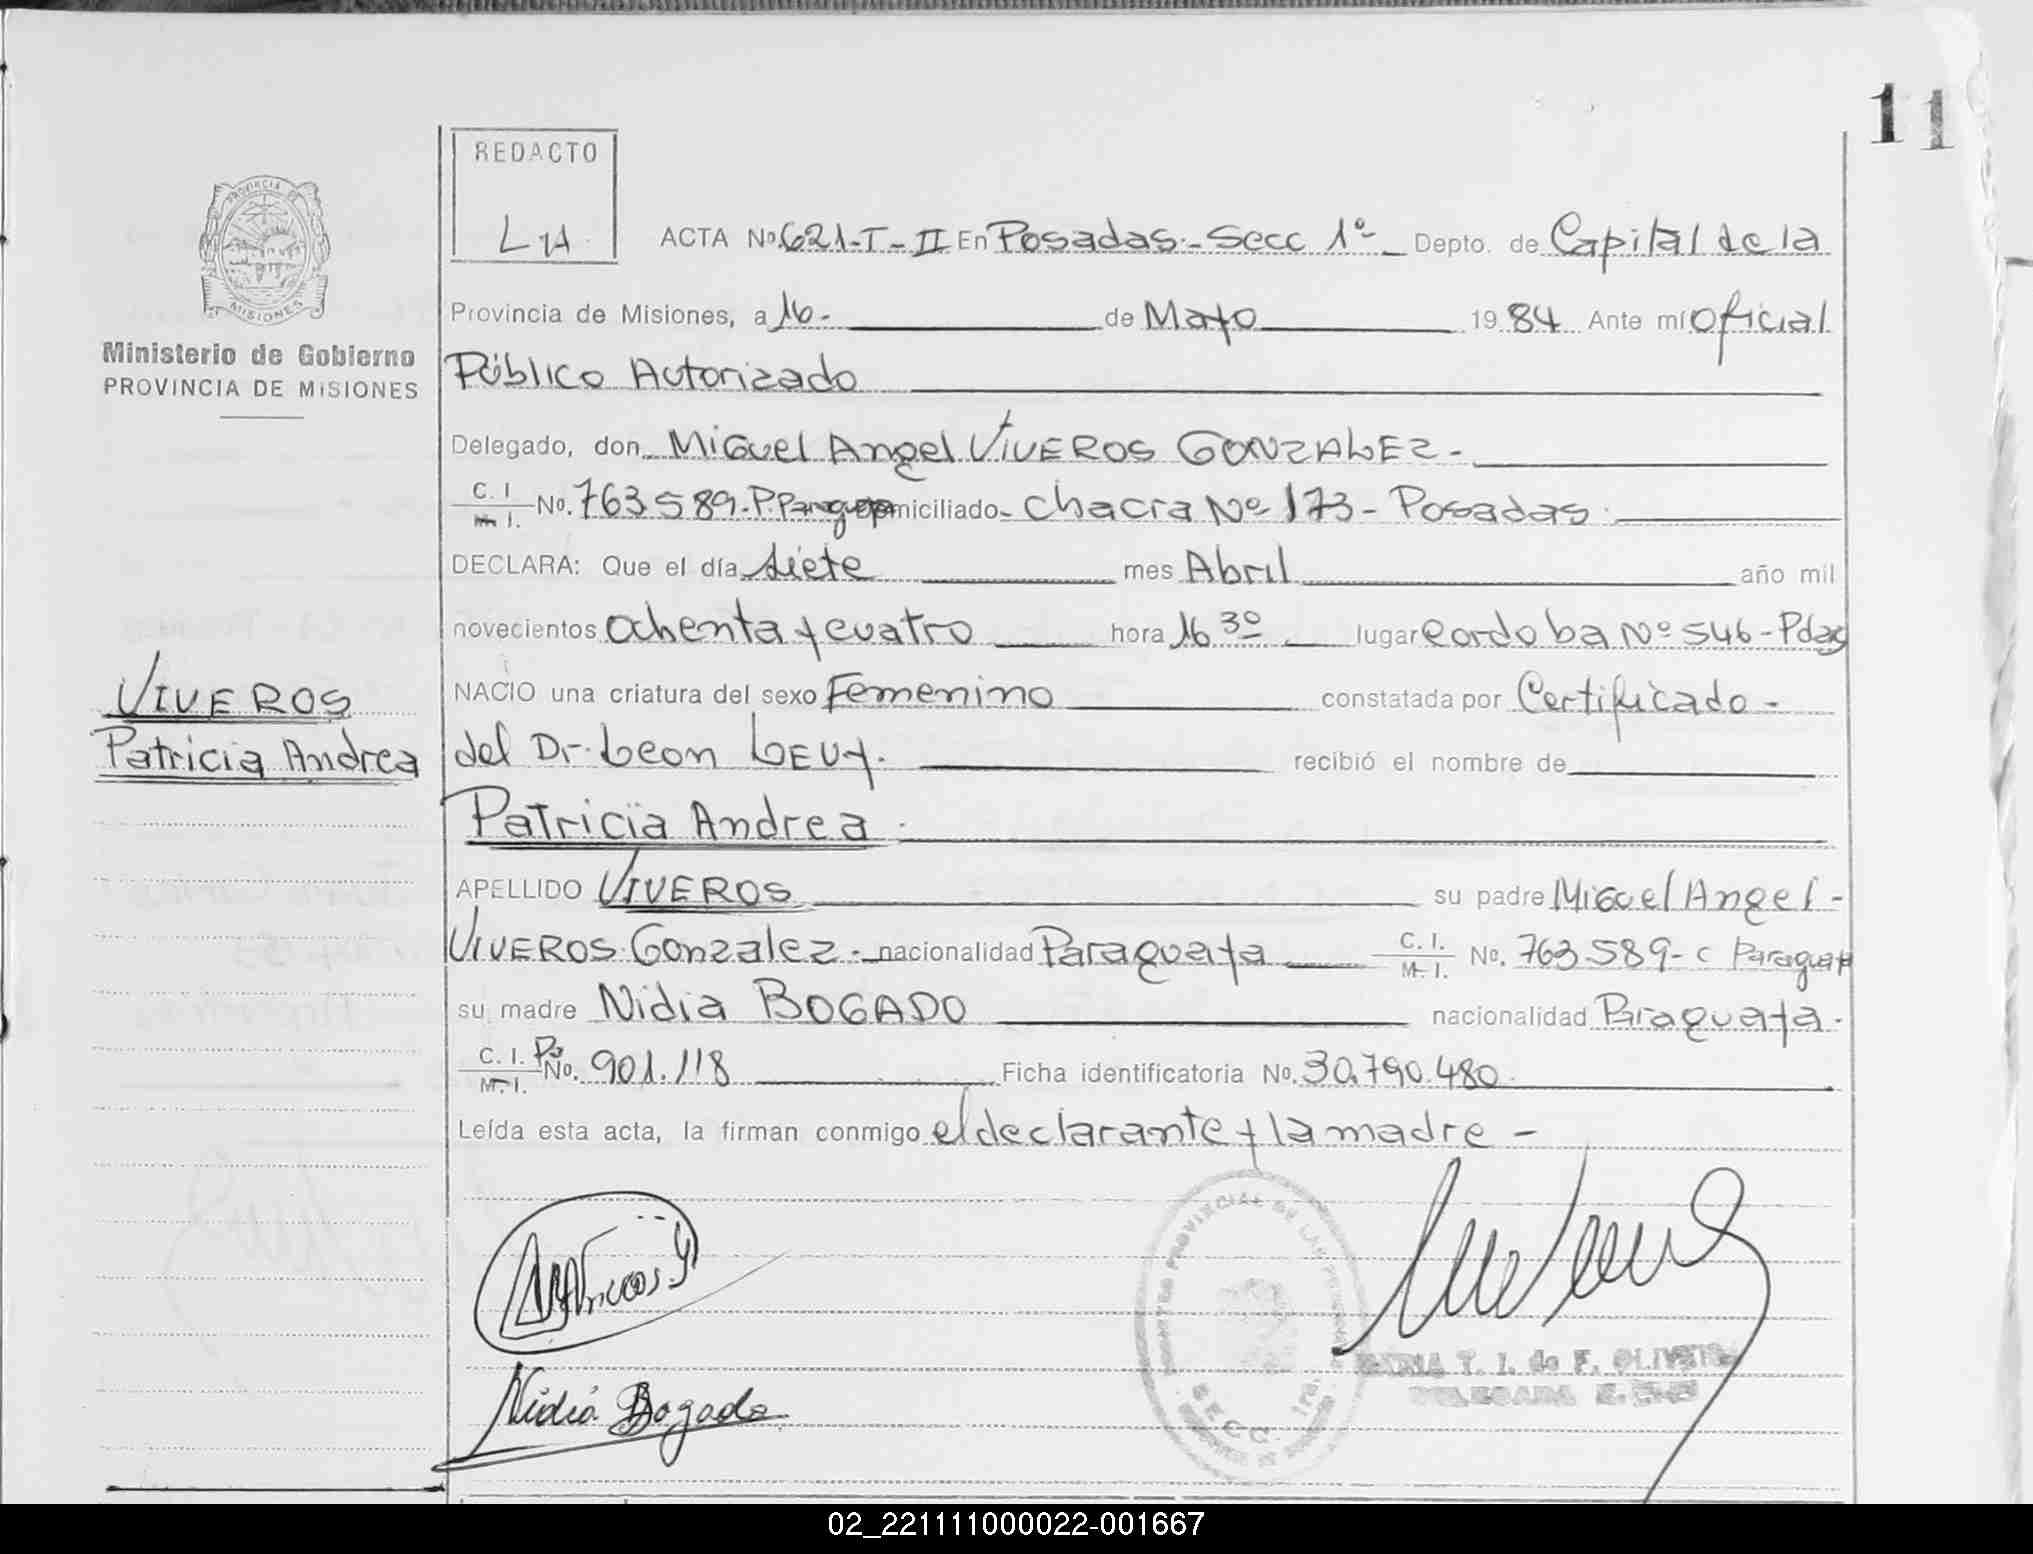 11
REDACTO
LIA.
PROVINCIA DE
MISIONES
Ministerio de Gobierno
PROVINCIA DE MISIONES
VIVEROS
Patricia Andrea
ACTA No. 621-I-II En Posadas.- Secc 1º- Depto. de Capital de la
Provincia de Misiones, a 16.- de Mayo 19 84 Ante mí Oficial
Público Autorizado
Delegado, don Miguel Angel VIVEROS GONZALEZ.-
C. I. M. I. No. 763.589.-P.Paraguaya domiciliado- Chacra Nº 173- Posadas.
DECLARA: Que el día siete mes Abril año mil
novecientos ochenta y cuatro hora 16 30 lugar Cordoba Nº 546-Pdas
NACIO una criatura del sexo Femenino constatada por Certificado-
del Dr. Leon LEVY. recibió el nombre de
Patricia Andrea.
APELLIDO VIVEROS su padre Miguel Angel-
VIVEROS Gonzalez.- nacionalidad Paraguaya C. I. M. I. No. 763.589- C Paraguaya
su madre Nidia BOGADO nacionalidad Paraguaya.
C. I. M. I. Pa No. 901.118 Ficha identificatoria No. 30.790.480.
Leída esta acta, la firman conmigo el declarante y la madre-
PROVINCIAL DE LAS
SECC. 1ra.
T. I. de F. OLIVEIRA
DELEGADA
Nidia Bogado
02_221111000022-001667